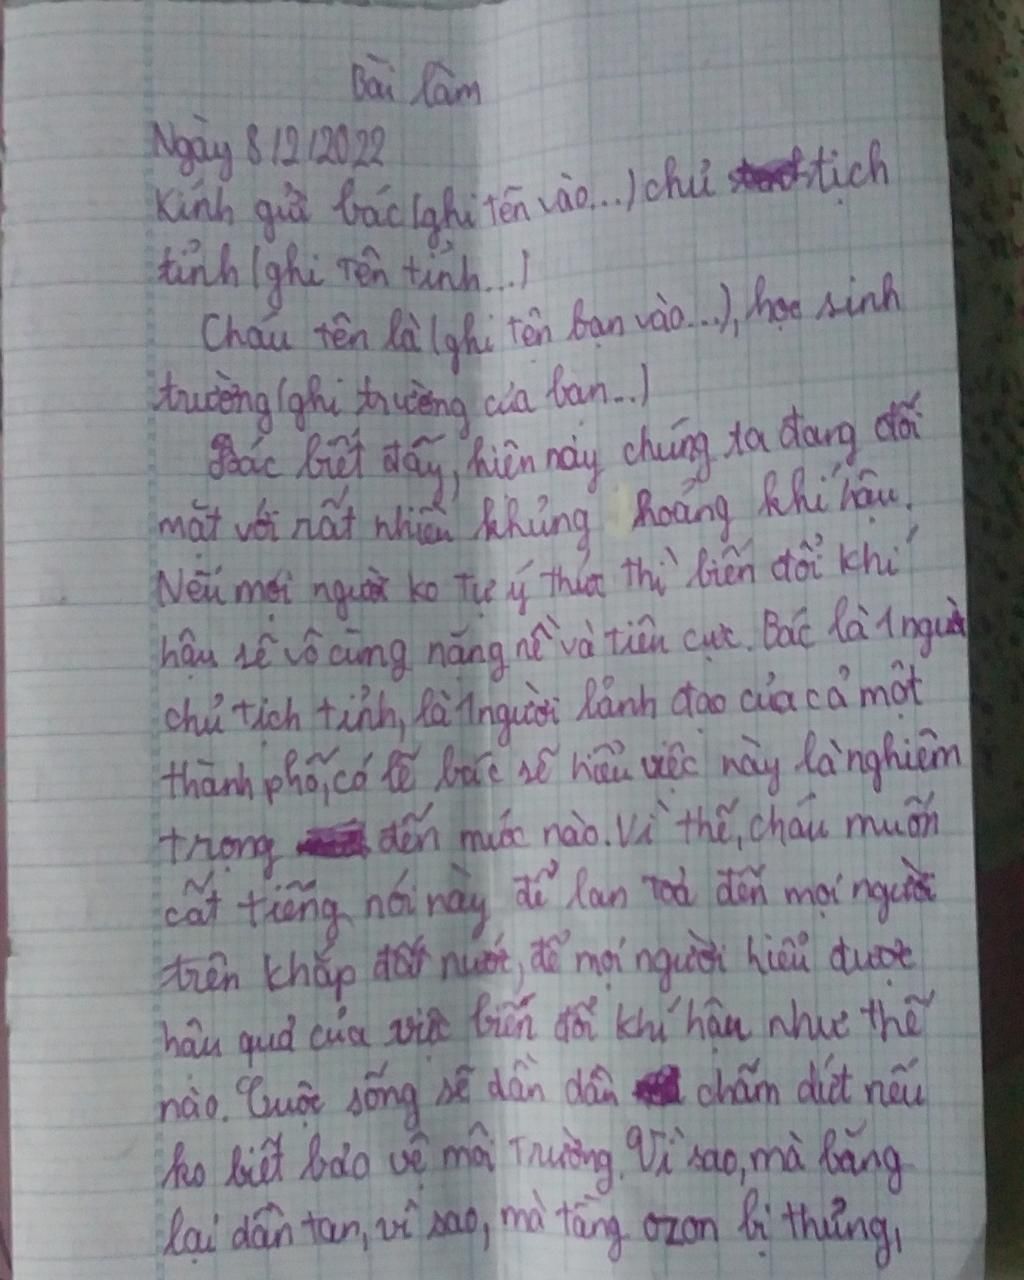 Bài làm
Ngày 8/2/2022
Kính gửi bác (ghi tên vào...) chủ tịch
tỉnh (ghi tên tỉnh...)
Cháu tên là (ghi tên bạn vào...), học sinh
trường (ghi trường của bạn...)
Bác biết đấy, hiện nay chúng ta đang đối
mặt với rất nhiều khủng hoảng khí hậu.
Nếu mọi người ko tự ý thức thì biến đổi khí
hậu sẽ vô cùng nặng nề và tiêu cực. Bác là 1 người
chủ tịch tỉnh, là 1 người lảnh đạo của cả một
thành phố, có lẽ bác sẽ hiểu việc này là nghiêm
trọng đến mức nào. Vì thế, cháu muốn
cất tiếng nói này để lan toả đến mọi người
trên khắp đất nước, để mọi người hiểu được
hậu quả của việc biến đổi khí hậu như thế
nào. Cuộc sống sẽ dần dần chấm dứt nếu
ko biết bảo vệ môi trường. Vì sao, mà băng
lại dần tan, vì sao, mà tầng ozon bị thủng,